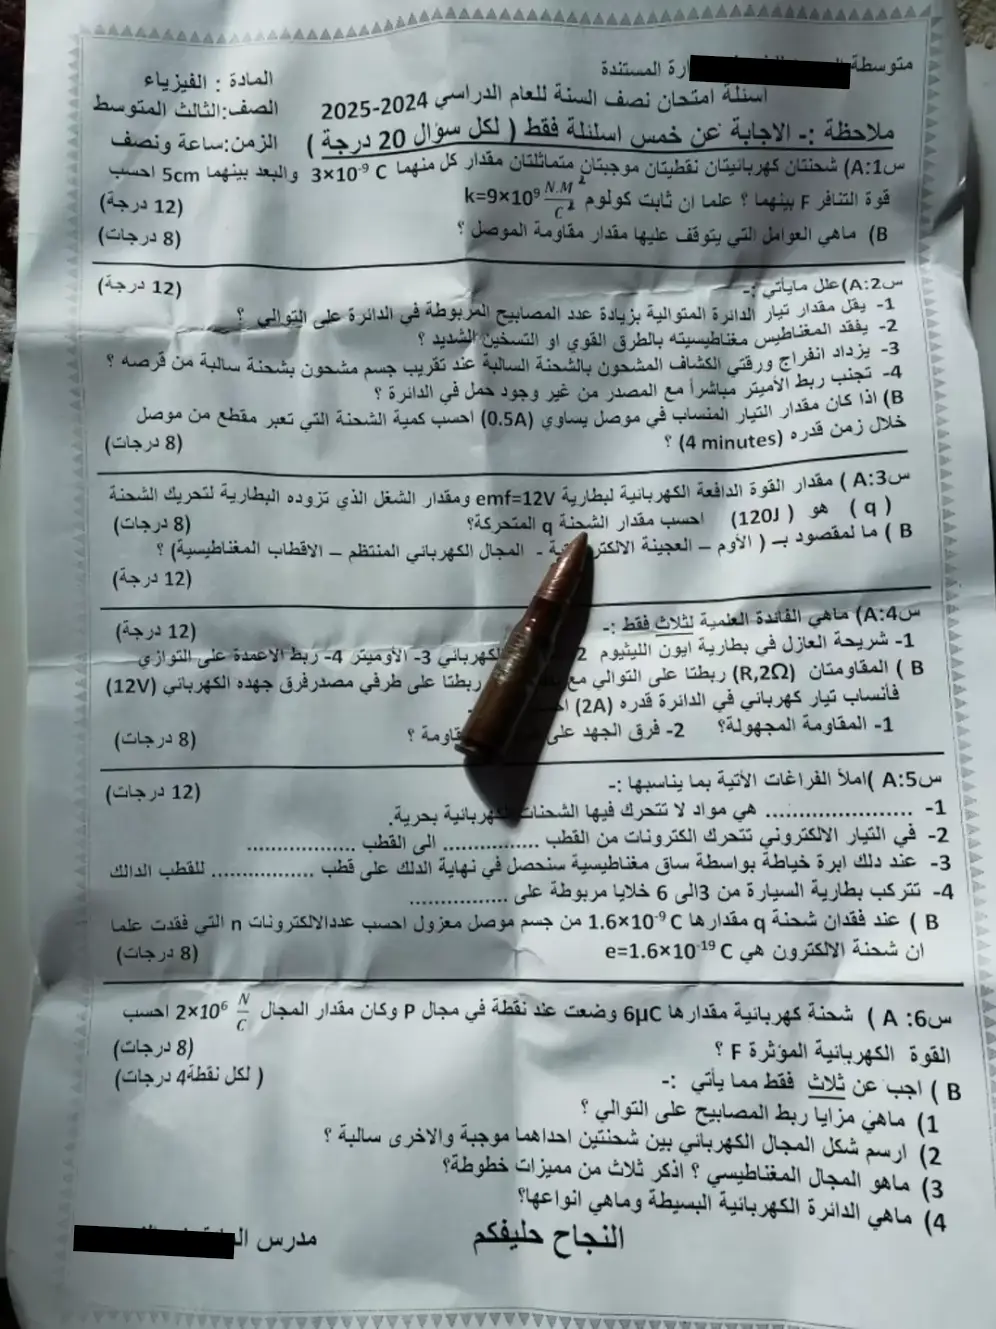 متوسطة
ارة المستندة
المادة : الفيزياء
اسئلة امتحان نصف السنة للعام الدراسي 2024-2025
الصف:الثالث المتوسط
ملاحظة :- الاجابة عن خمس اسلئلة فقط ( لكل سؤال 20 درجة )
الزمن:ساعة ونصف
س1:A) شحنتان كهربائيتان نقطيتان موجبتان متماثلتان مقدار كل منهما 3×10⁻⁹ C والبعد بينهما 5cm احسب
قوة التنافر F بينهما ؟ علما ان ثابت كولوم k=9×10⁹ N.M²/C² (12 درجة)
B) ماهي العوامل التي يتوقف عليها مقدار مقاومة الموصل ؟ (8 درجات)
س2:A)علل مايأتي :- (12 درجة)
1- يقل مقدار تيار الدائرة المتوالية بزيادة عدد المصابيح المربوطة في الدائرة على التوالي ؟
2- يفقد المغناطيس مغناطيسيته بالطرق القوي او التسخين الشديد ؟
3- يزداد انفراج ورقتي الكشاف المشحون بالشحنة السالبة عند تقريب جسم مشحون بشحنة سالبة من قرصه ؟
4- تجنب ربط الأميتر مباشرأ مع المصدر من غير وجود حمل في الدائرة ؟
B) اذا كان مقدار التيار المنساب في موصل يساوي (0.5A) احسب كمية الشحنة التي تعبر مقطع من موصل
خلال زمن قدره (4 minutes) ؟ (8 درجات)
س3:A ) مقدار القوة الدافعة الكهربائية لبطارية emf=12V ومقدار الشغل الذي تزوده البطارية لتحريك الشحنة
( q ) هو ( 120J) احسب مقدار الشحنة q المتحركة؟ (8 درجات)
B ) ما لمقصود بـ ( الأوم – العجينة - المجال الكهربائي المنتظم – الاقطاب المغناطيسية) ؟
(12 درجة)
س4:A) ماهي الفائدة العلمية لثلاث فقط :- (12 درجة)
1- شريحة العازل في بطارية ايون الليثيوم 2 الكهربائي 3- الأوميتر 4- ربط الاعمدة على التوازي
B ) المقاومتان (R,2Ω) ربطتا على التوالي مع ربطتا على طرفي مصدرفرق جهده الكهربائي (12V)
فأنساب تيار كهربائي في الدائرة قدره (2A)
1- المقاومة المجهولة؟ 2- فرق الجهد على مقاومة ؟ (8 درجات)
س5:A )املأ الفراغات الأتية بما يناسبها :- (12 درجات)
1- ..................... هي مواد لا تتحرك فيها الشحنات الكهربائية بحرية.
2- في التيار الالكتروني تتحرك الكترونات من القطب ................ الى القطب .................
3- عند دلك ابرة خياطة بواسطة ساق مغناطيسية سنحصل في نهاية الدلك على قطب ................ للقطب الدالك
4- تتركب بطارية السيارة من 3الى 6 خلايا مربوطة على ................
B ) عند فقدان شحنة q مقدارها 1.6×10⁻⁹ C من جسم موصل معزول احسب عددالالكترونات n التي فقدت علما
ان شحنة الالكترون هي e=1.6×10⁻¹⁹ C (8 درجات)
س6: A ) شحنة كهربائية مقدارها 6μC وضعت عند نقطة في مجال P وكان مقدار المجال 2×10⁶ N/C احسب
القوة الكهربائية المؤثرة F ؟ (8 درجات)
B ) اجب عن ثلاث فقط مما يأتي :- ( لكل نقطة4 درجات)
1) ماهي مزايا ربط المصابيح على التوالي ؟
2) ارسم شكل المجال الكهربائي بين شحنتين احداهما موجبة والاخرى سالبة ؟
3) ماهو المجال المغناطيسي ؟ اذكر ثلاث من مميزات خطوطة؟
4) ماهي الدائرة الكهربائية البسيطة وماهي انواعها؟
النجاح حليفكم
مدرس